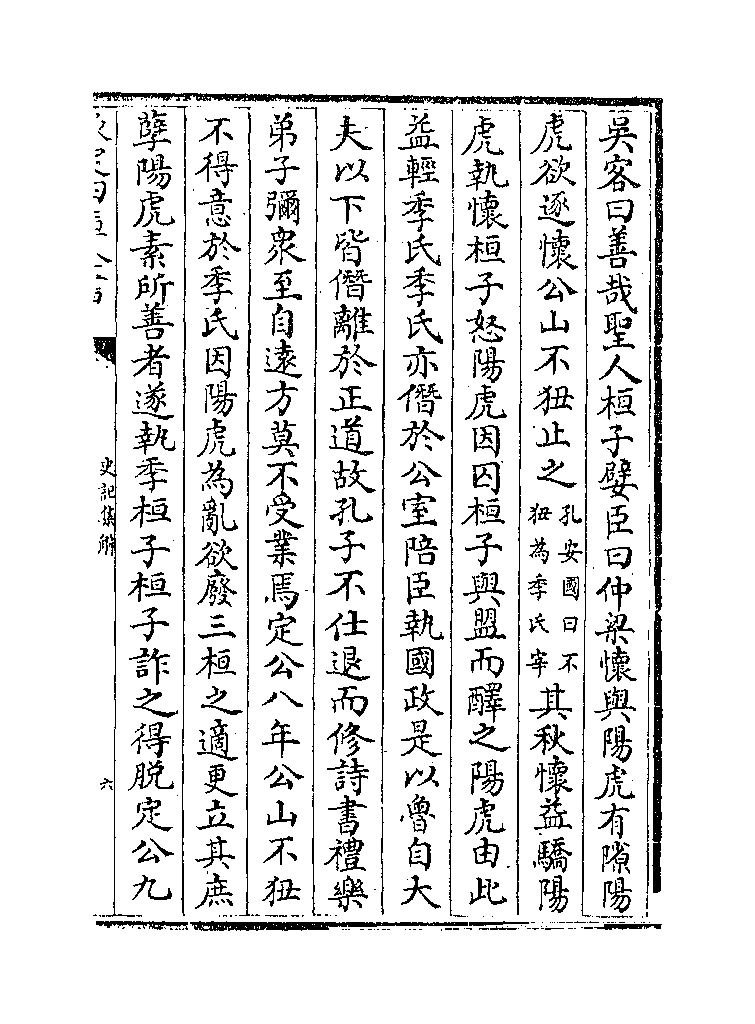 吳客曰善哉聖人桓子嬖臣曰仲梁懷與陽虎有隙陽
虎欲逐懷公山不狃止之孔安國曰不狃為季氏宰其秋懷益驕陽
虎執懷桓子怒陽虎因囚桓子與盟而醳之陽虎由此
益輕季氏季氏亦僭於公室陪臣執國政是以魯自大
夫以下皆僭離於正道故孔子不仕退而修詩書禮樂
弟子彌衆至自遠方莫不受業焉定公八年公山不狃
不得意於季氏因陽虎為亂欲廢三桓之適更立其庶
孽陽虎素所善者遂執季桓子桓子詐之得脱定公九
史記集解
六